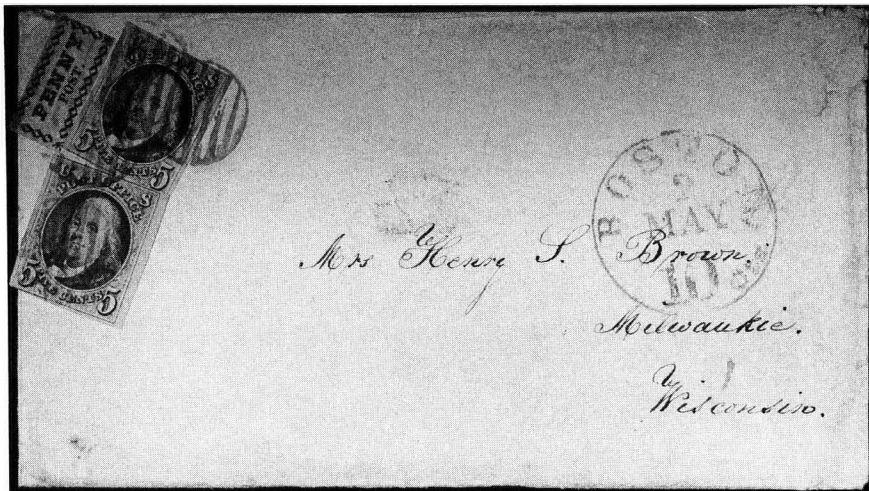 PENNY
POST
POST OFFICE
5 FIVE CENTS 5
POST OFFICE
5 FIVE CENTS 5
BOSTON
2
MAY
10 cts
Mrs Henry S. Brown.
Milwaukie.
Wisconsin.